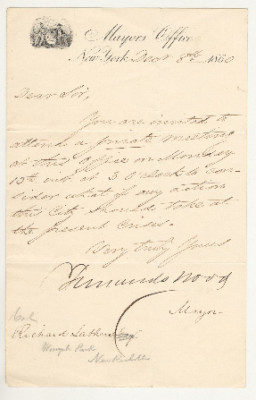 Mayor's Office
New York Decr 8th 1860
Dear Sir,
You are invited to
attend a private meeting
at this Office on Monday
10th inst at 3 O'clock to con-
sider what if any action
this City should take at
the present Crisis.
Very truly Yours
Fernando Wood
Mayor
Richard Lathers
Park
New Rochelle